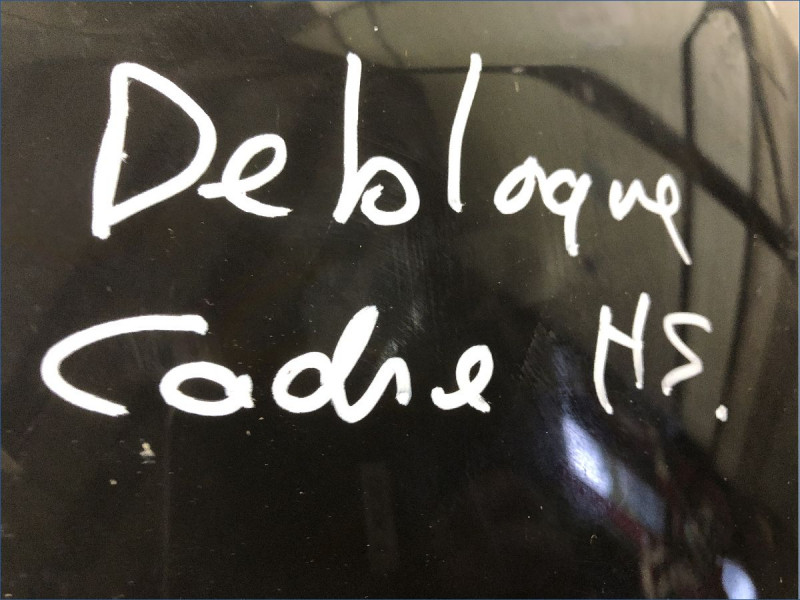 Debloque
Cadre HS.